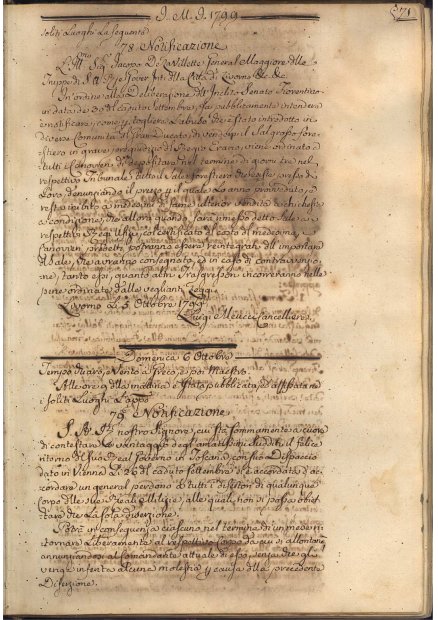 D. M. D. 1799
571
soliti Luoghi La seguente
78 Notificazione
L'Ill Sig Jacopo De Lavillette General Maggiore delle
Truppe di S A R e Gover della Città di Livorno &c &c
In ordine alla Deliberazione dell' Inclito Senato Fiorentino
in data de 30 del caduto settembre, fa pubblicamente intendere
e notificare, come
diverse Comunità del Gran Ducato, di vendersi il Sal grosso fore-
stiero in grave pregiudizio del Regio Erario, viene ordinato a
tutti i Canovieri di depositare nel termine di giorni tre nel
respettivo Tribunale tutto il Sale forestiero presso di
Loro, denunziando il prezzo per il quale Lo anno
condizione, che allora quando sarà rimesso detto Sale a
respettivi Regi Ufizi, col certificato del peso al medesimo, i
Canovieri predetti potranno essere reintegrati dell' importare
del Sale, che avranno consegnato, e in caso di contravvenzio-
ne, tanto essi, quanto altri Trasgressori incorreranno nelle
pene ordinate dalle veglianti Leggi.
Livorno Li 5 Ottobre 1799
Luigi Cancelliere
Domenica 6 Ottobre
Tempo vario, e Vento a Greco, e poi Maestro.
Alle ore 9 della mattina è stata pubblicata, ed affissata ne
i soliti Luoghi La
79 Notificazione
S. A. R. nostro Signore, cui sta sommamente a cuore
di contestare Li vantaggi degli amatissimi Sudditi il felice
ritorno del suo Real Governo in Toscana, con suo Dispaccio
dato in Vienna Li 26 del caduto settembre si è accordata d'ac-
cordare un general perdono a tutti i disertori di qualunque
Corpo delle sue Reali Milizie, alle quali non si possa obiet-
tare che La sola diserzione.
Potrà in conseguenza ciascuno nel termine di un mese ri-
tornare Liberamente al respettivo Corpo da cui si allontanò
annunziandosi al Comandante attuale di esso, senza che gli
venga inferita alcuna molestia per causa della precedente
Diserzione.